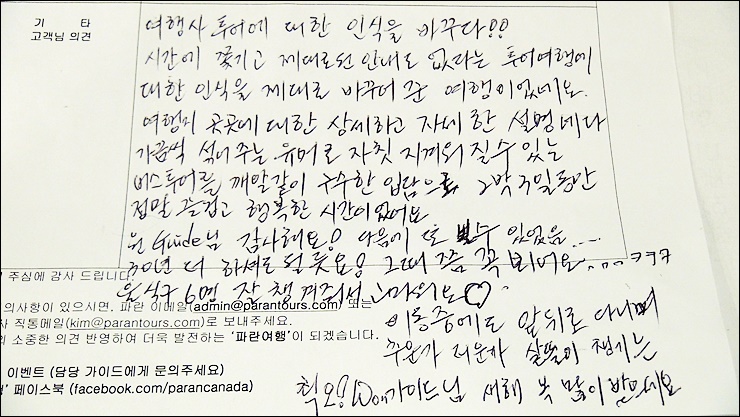 기 타
고객님 의견
여행사 투어에 대한 인식을 바꾸다!!
시간에 쫓기고 제대로된 안내도 없다라는 투어여행에
대한 인식을 제대로 바꾸어 준 여행이었네요.
여행지 곳곳에 대한 상세하고 자세한 설명에다
가끔씩 섞어주는 유머로 자칫 지겨워 질수 있는
버스투어를 깨알같이 구수한 입담으로 2박3일동안
정말 즐겁고 행복한 시간이었어요
원 Guide님 감사해요! 다음에 또 뵐수 있었음....
30년 더 하셔도 될 듯요! 그때 쯤 꼭 뵈어요....ㅋㅋㅋ
울식구 6명 잘 챙겨줘서 고마워요♡
이동중에도 앞뒤로 다니며
추운가 더운가 살뜰이 챙기는
최고! Won가이드님 새해 복 많이 받으세요
주심에 감사 드립니다.
의사항이 있으시면, 파란 이메일(admin@parantours.com) 또는
사 직통메일(kim@parantours.com)로 보내주세요.
의 소중한 의견 반영하여 더욱 발전하는 '파란여행'이 되겠습니다.
이벤트 (담당 가이드에게 문의주세요)
' 페이스북 (facebook.com/parancanada)